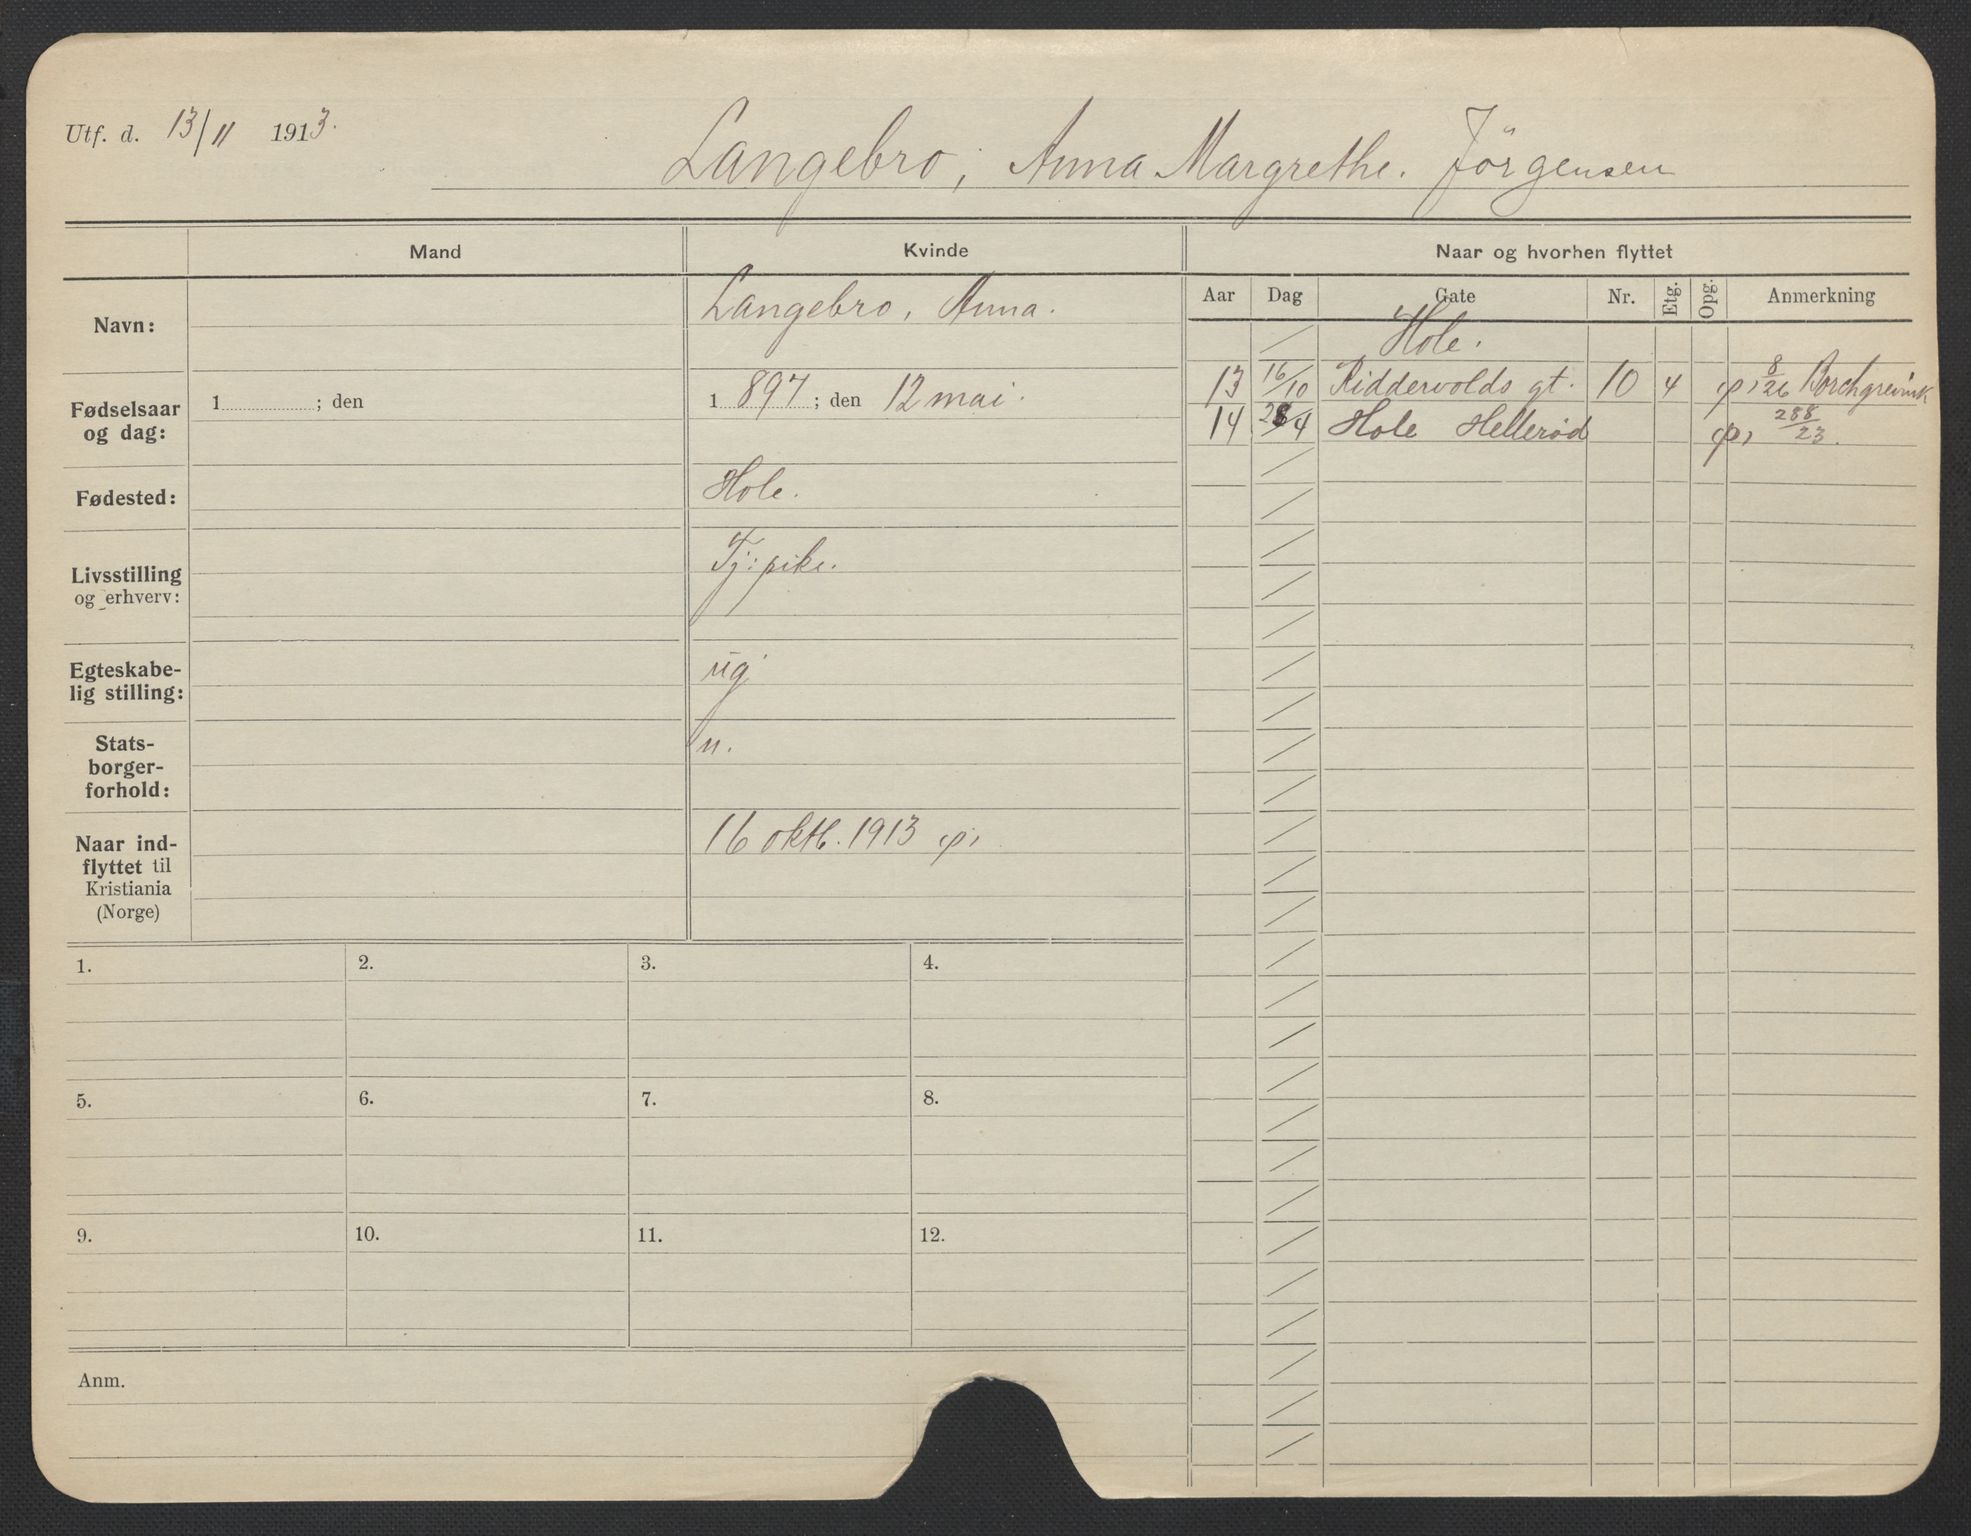 Utf. d. 13/11 1913.
Langebro, Anna Margrethe. Jörgensen
Mand
Kvinde
Naar og hvorhen flyttet
Navn:
Langebro, Anna.
Fødselsaar
og dag:
1 ; den
1 897 ; den 12 mai.
Fødested:
Hole.
Livsstilling
og erhverv:
Tj: pike.
Egteskabe-
lig stilling:
ug
Stats-
borger-
forhold:
n.
Naar ind-
flyttet til
Kristiania
(Norge)
16 oktb. 1913
Aar Dag Gate Nr. Etg. Opg. Anmerkning
Hole.
13 16/10 Riddervolds gt. 10 4 8/26 Borchgrevink
14 28/4 Hole Hellerød 288/23.
1. 2. 3. 4.
5. 6. 7. 8.
9. 10. 11. 12.
Anm.